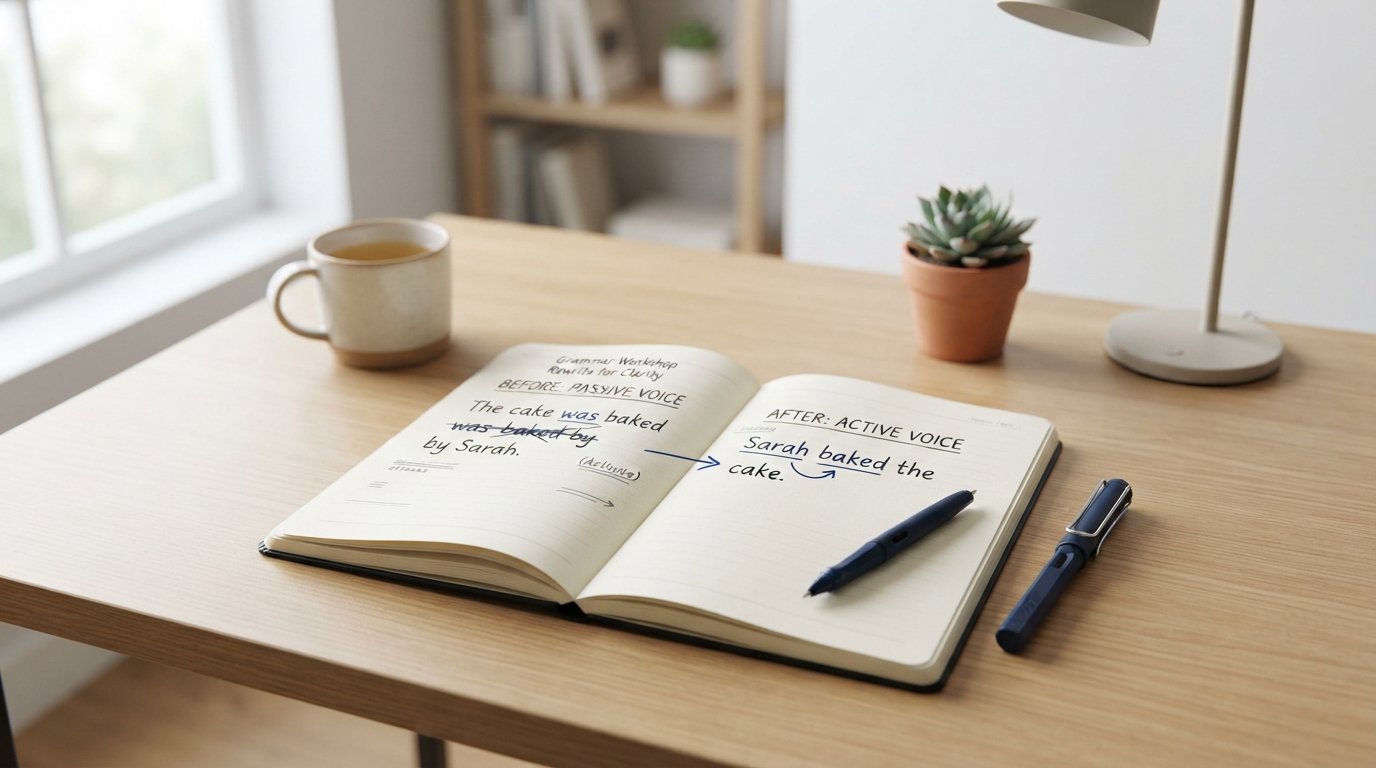 Grammar Workshop
BEFORE: PASSIVE VOICE
The cake was baked
was baked by
by Sarah.
AFTER: ACTIVE VOICE
Sarah baked the
cake.